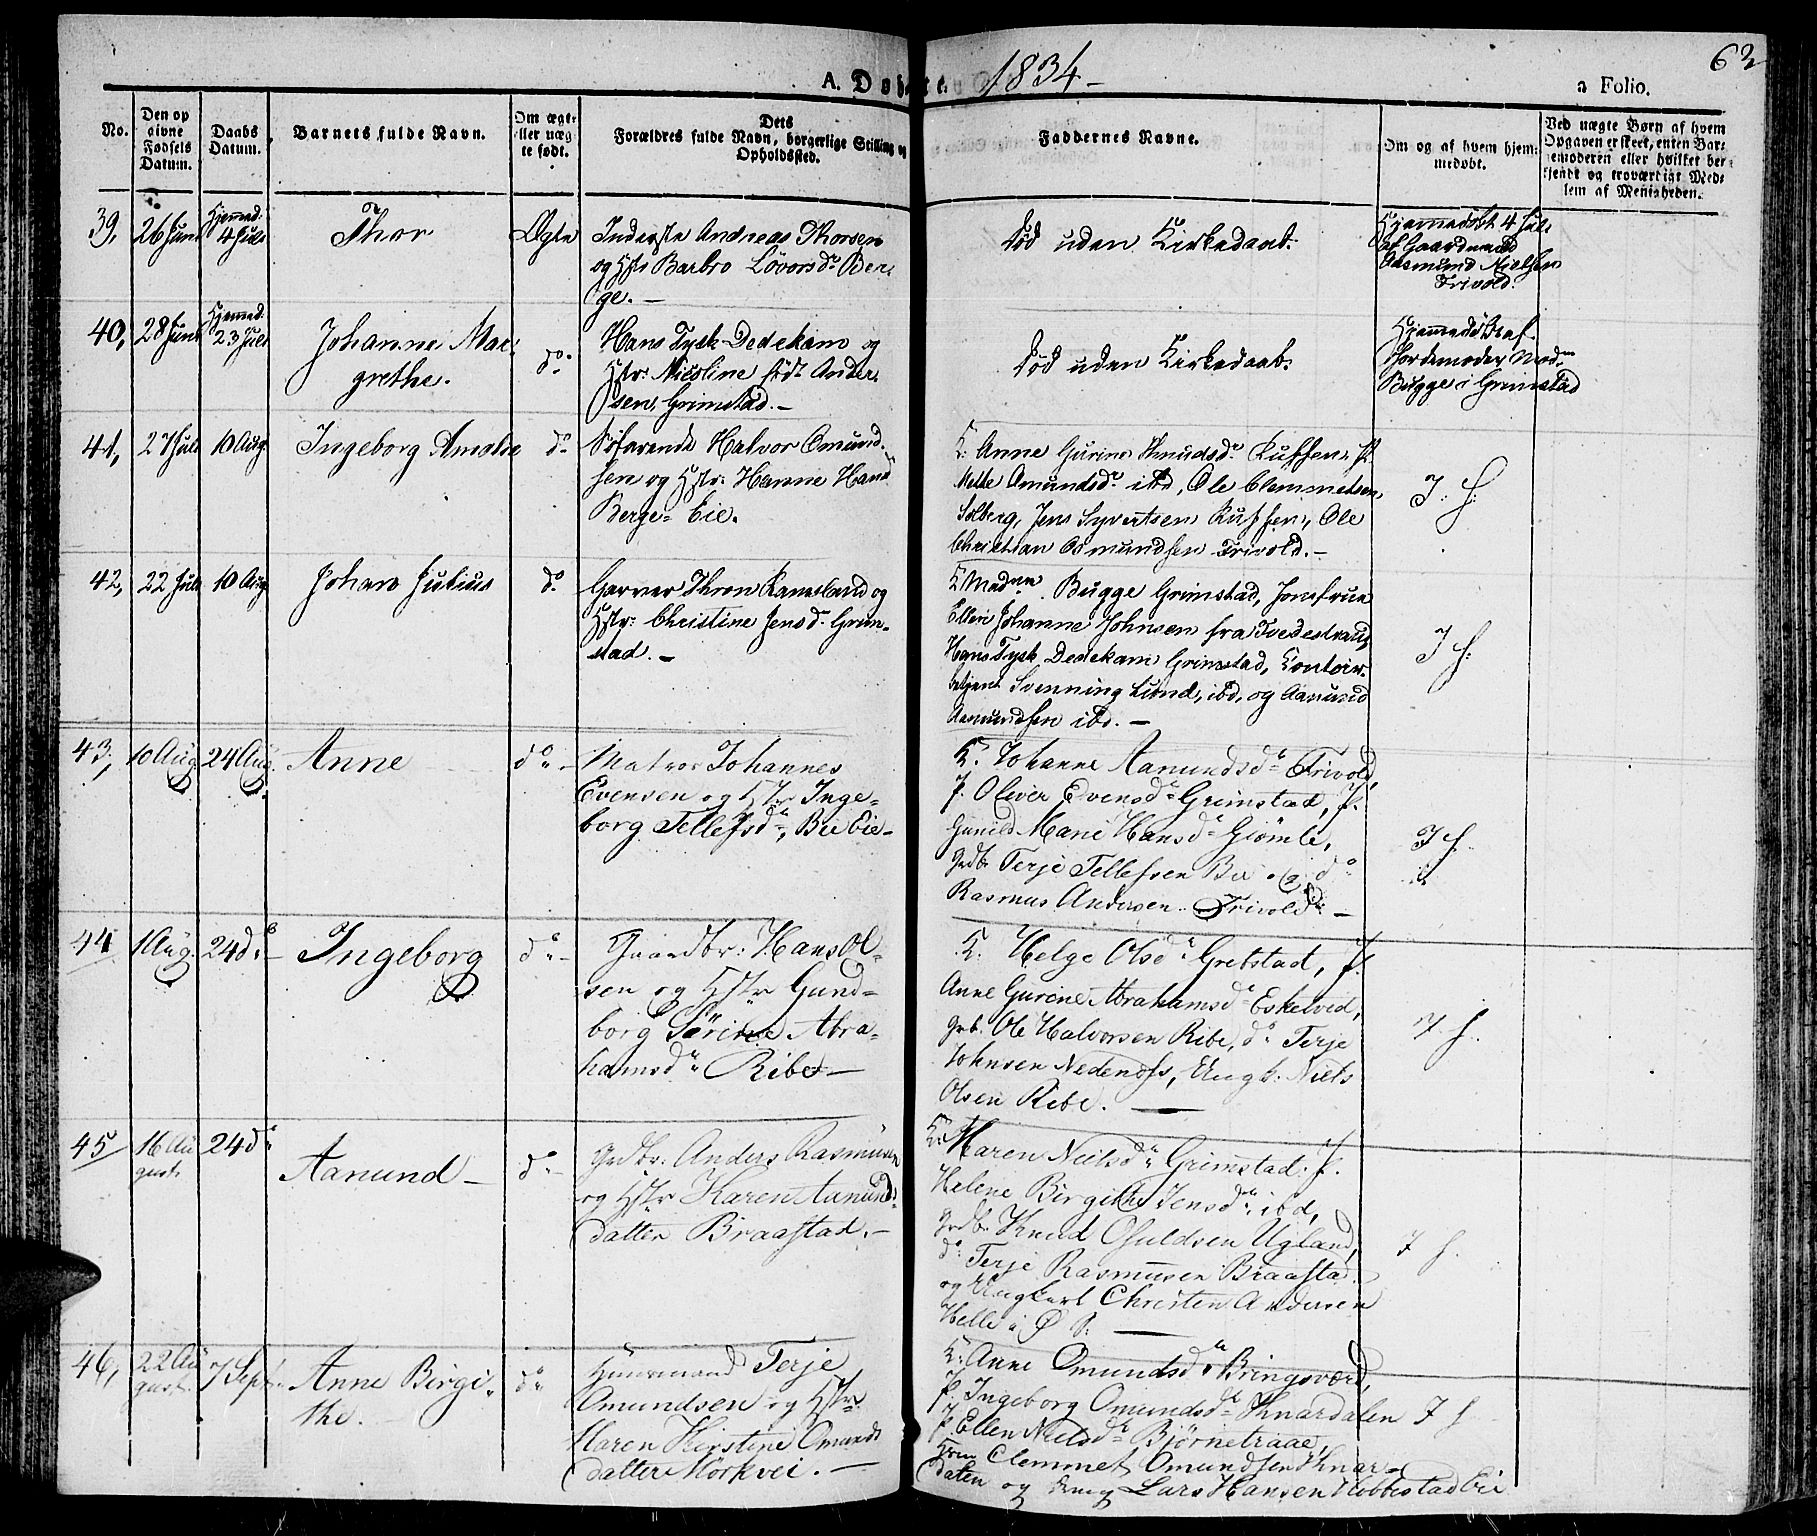 1834
63
A. Døbte
a Folio.
No.
Den op
givne
Fødsels
Datum.
Daabs
Datum.
Barnets fulde Navn.
Om ægte
eller uæg
te født.
Dets
Forældres fulde Navn, borgerlige Stilling og
Opholdssted.
Faddernes Navne.
Om og af hvem hjem-
medøbt.
Ved uægte Børn af hvem
Opgaven er skeet, enten Bar-
nemoderen eller hvilket ber-
og troværdigt Med-
lem af Menigheden.
39,
26 Juni
Hjemmed:
4 Juli
Thor
Ægte
Inderste Andreas Thorsen
og Hstr Barbro Lövorsd. Ber-
ge. —
død uden Kirkedaab.
Hjemmedøbt 4 Juli
af Gaardmand
Aasmund Nielsen
Frivold.
40,
28 Juni
Hjemmed:
23 Juli
Johanne Mar-
grethe.
do.
Hans Tysk Dedekam og
Hstr: Nicoline födt Ander-
sen, Grimstad. —
död uden Kirkedaab.
Hjemmedöbt af
Jordemoder Madm
Bugge i Grimstad
41,
27 Juli
10 Aug
Ingeborg Amalie
do
Söfarende Halvor Omund-
sen og Hstr: Hanne Hans
Berge- Eie.
K. Anne Gurine Knudsdr. Kussen, P.
Mette Omundsdr. ibd, Ole Clemmetsen
Solberg, Jens Syvertsen Kussen, Ole
Christian Osmundsen Frivold. —
I. K:
42,
22 Juli
10 Aug
Johan Julius
do
Garver Thron Ramsland og
Hstr: Christine Jensd. Grim-
stad. —
K Madmm. Bugge Grimstad, Jomfrue
Ellen Johanne Johnsen fra Tvedestrand
Hans Tysk Dedekam Grimstad, Contoir-
betjent Svenning Lund, ibd, og Aanund
Aanundsen ibd. —
I K:
43,
10 Aug
24 Aug.
Anne
do. -
Matros Johannes
Evensen og Hstr Inge-
borg Tellefsdr, Bie Eie-
K. Johanne Aanundsdr Frivold,
P. Oliver Evensdr Grimstad, P.
Gunild Marie Hansdr Giömle,
Grdb. Terje Tellefsen Bie og do
Rasmus Andersen Frivold —
I K.
44
1 Aug.
24 do -
Ingeborg
do. -
Gaardbr: Hans Ol-
sen og Hstr Gund-
borg Sörine Abra-
hamsdr Ribe —
K. Helge Olsdr Grefstad, P.
Anne Gurine Abrahamsdr Eskelvid,
Grb. Ole Halvorsen Ribe, do Terje
Johnsen Nedenæs, Ungk. Niels
Olsen Ribe. —
I K.
45
16 Au
gust.
24 do
Aanund —
do. -
Grdbr. Anders Rasmusen
og Hstr Karen Aanunds-
datter Braastad. —
K. Maren Nielsdr Grimstad. P.
Helene Birgithe Jensdr ibd,
Grdb. Knud Osuldsen Ugland,
do Terje Rasmusen Braasta
og Ungkarl Christen Andersen
Helle i Ø S: —
I K.
46,
22 Au
gust.
7 Sept.
Anne Birgi-
the.
do
Huusmand Terje
Omundsen og Hstr
Maren Kirstine Omunds
datter Mörkvei. —
K. Anne Omundsdr Bringsværd,
P. Ingeborg Omundsdr Knardalen
P Ellen Nielsdr Björnetraae,
Clemmet Omundsen Knar-
dalen og Lars Hansen Hobbestad Eie
I K